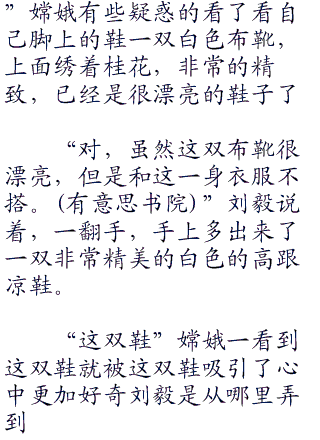 ”嫦娥有些疑惑的看了看自
己脚上的鞋一双白色布靴，
上面绣着桂花，非常的精
致，已经是很漂亮的鞋子了
“对，虽然这双布靴很
漂亮，但是和这一身衣服不
搭。(有意思书院)”刘毅说
着，一翻手，手上多出来了
一双非常精美的白色的高跟
凉鞋。
“这双鞋”嫦娥一看到
这双鞋就被这双鞋吸引了心
中更加好奇刘毅是从哪里弄
到